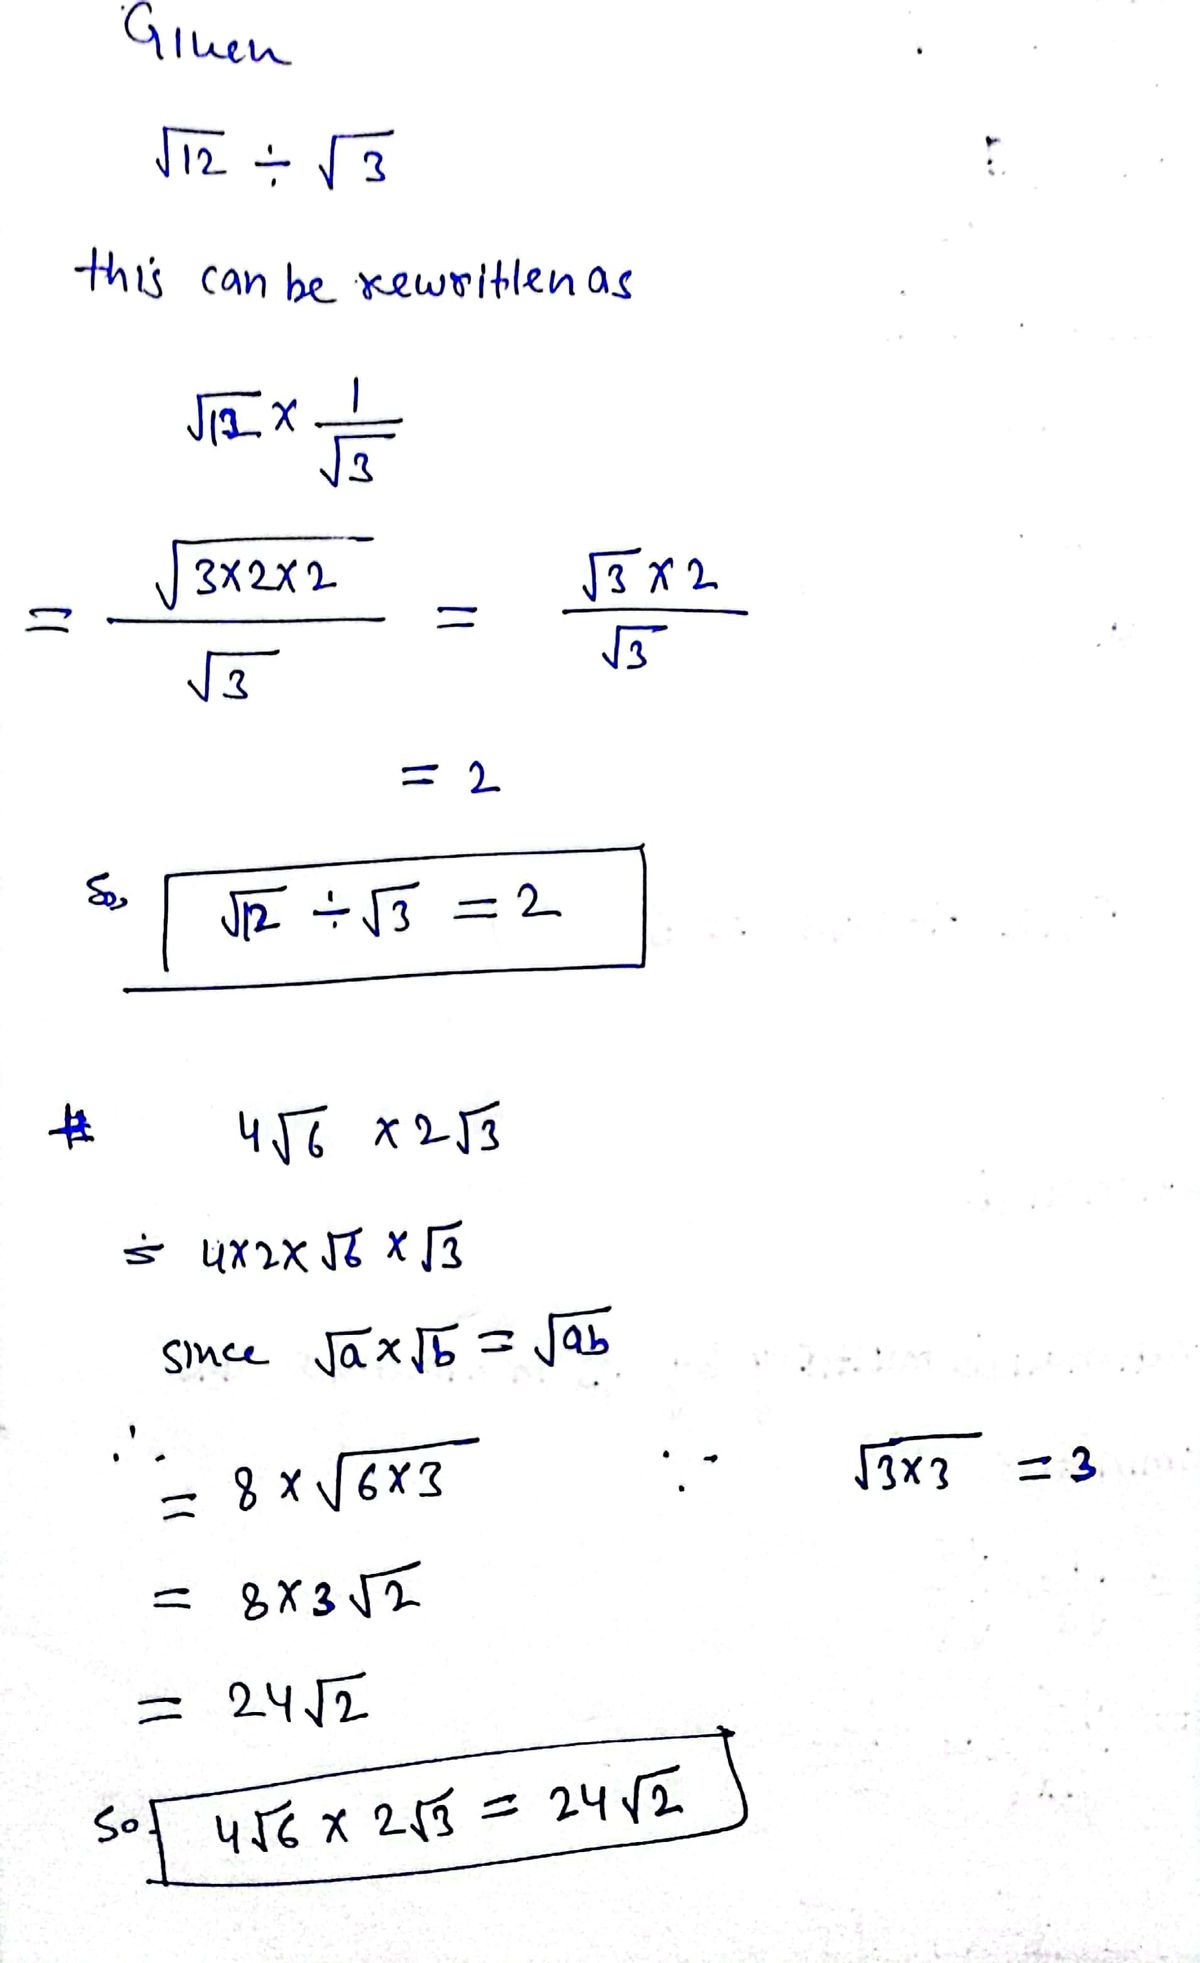 Given
√12 ÷ √3
this can be rewritten as
√12 × 1/√3
= √(3×2×2)/√3 = √3 × 2/√3
= 2
So, √12 ÷ √3 = 2
# 4√6 × 2√3
= 4×2×√6 × √3
since √a × √b = √ab
∴ = 8 × √(6×3) ∵ √(3×3) = 3
= 8×3√2
= 24√2
So 4√6 × 2√3 = 24√2